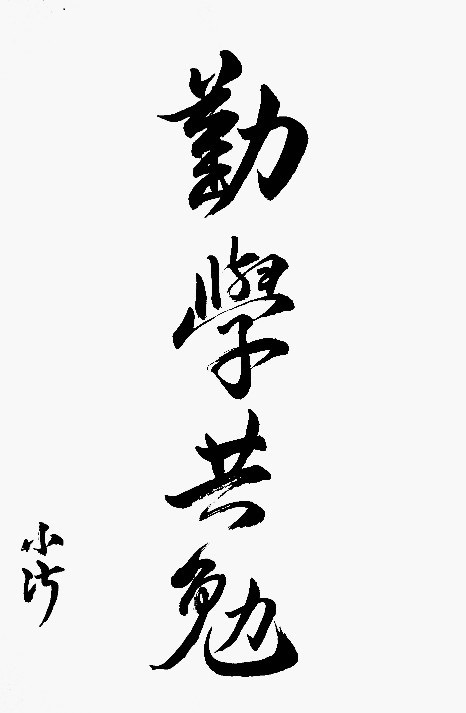 勤學共勉
小